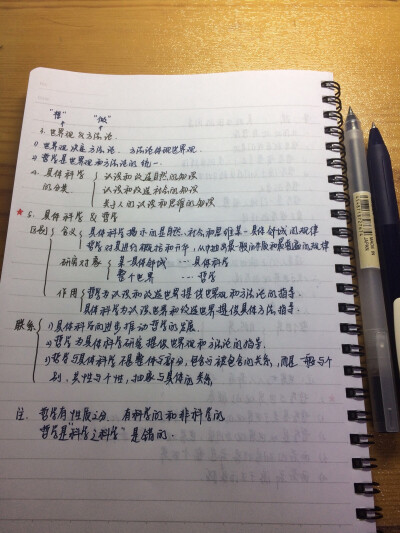 "想" "做"
3. 世界观及方法论.
1) 世界观决定方法论. 方法论体现世界观.
2) 哲学是世界观和方法论的统一.
4. 具体科学 认识和改造自然的知识
的分类 认识和改造社会的知识
关于人的认识和思维的知识
★ 5. 具体科学及哲学
区别 含义 具体科学揭示的是自然、社会和思维某一具体领域的规律
哲学对其进行概括和升华,从中抽象出最一般的本质和最普遍的规律
研究对象 某一具体领域 ··· 具体科学
整个世界 ··· 哲学
作用 哲学为认识和改造世界提供世界观和方法论的指导.
具体科学为认识和改造世界提供具体方法指导.
联系 1) 具体科学的进步推动哲学的发展.
2) 哲学为具体科学研究提供世界观和方法论的指导.
3) 哲学与具体科学不是整体与部分,包含与被包含的关系,而是一般与个
别,共性与个性,抽象与具体的关系
注. 哲学有性质之分. 有科学的和非科学的
哲学是"科学之科学"是错的.